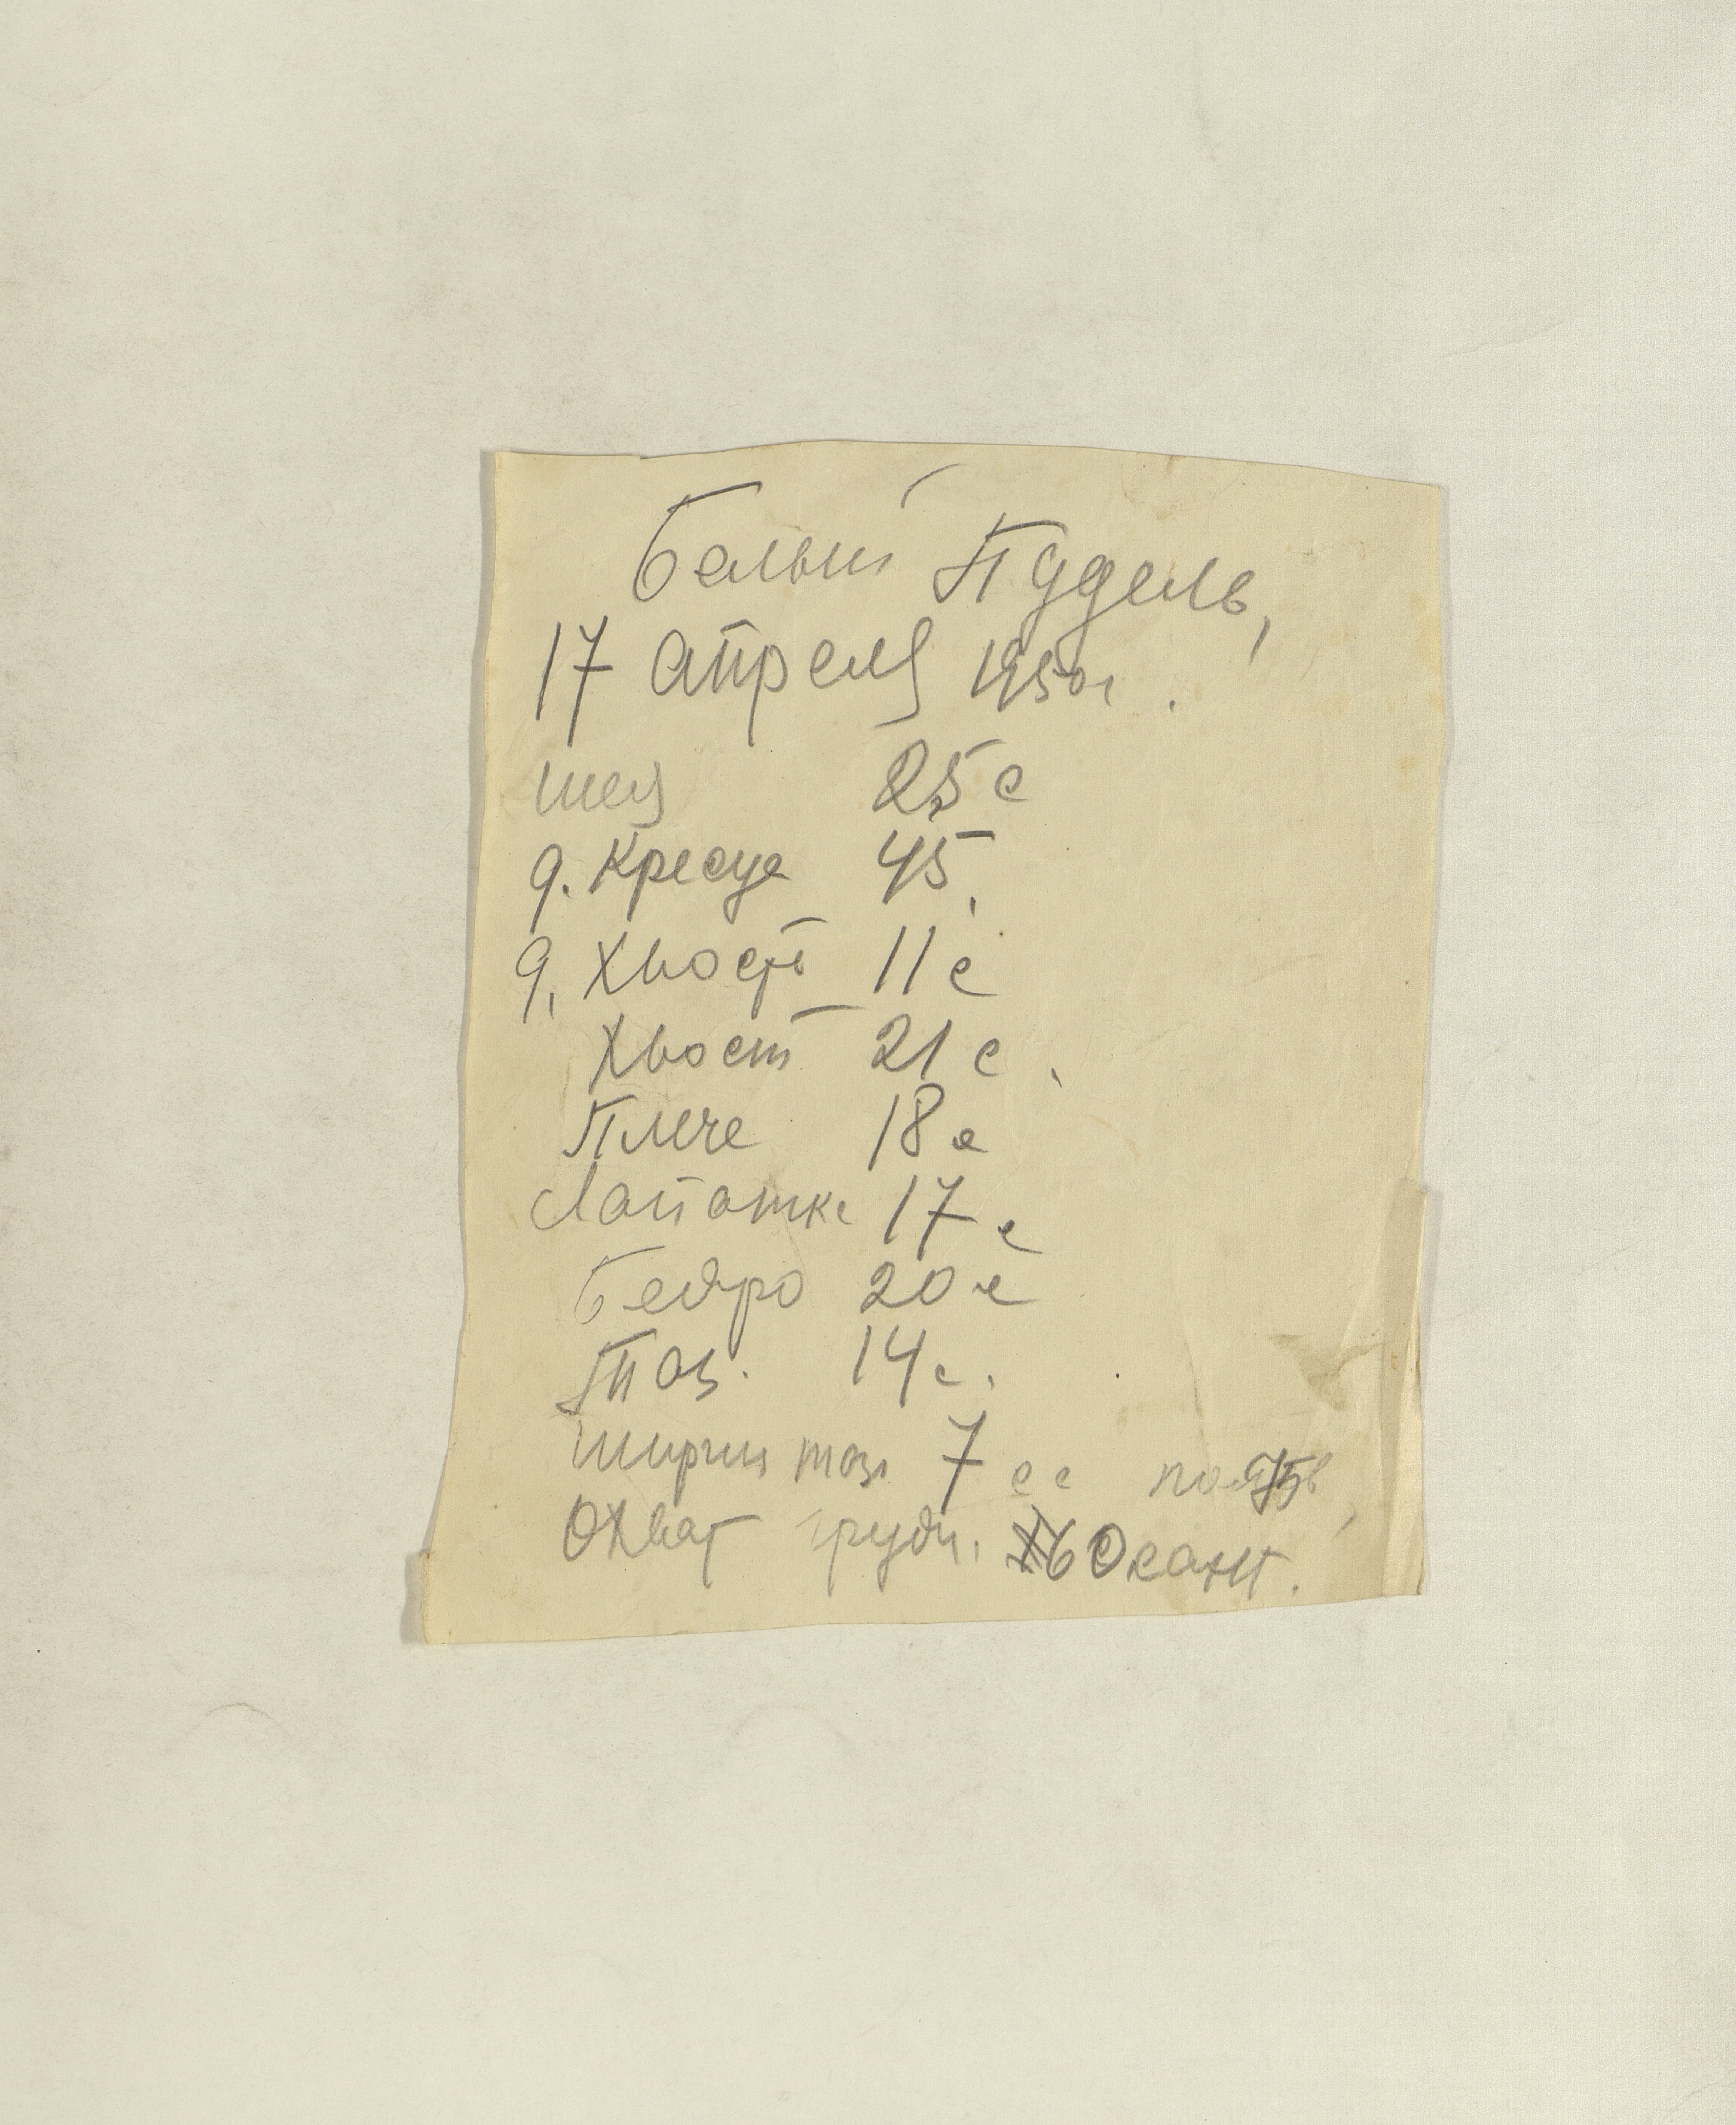 Белый Пудель,
17 Апреля 1950г.
шея 25 с
д. Кресца 45.
д. Хвоста 11 с
Хвост 21 с.
Плече 18 с
Лапатке 17 с
Бедро 20 с
Таз. 14 с.
ширин таза 7 с
Охват груди. 60 сант.